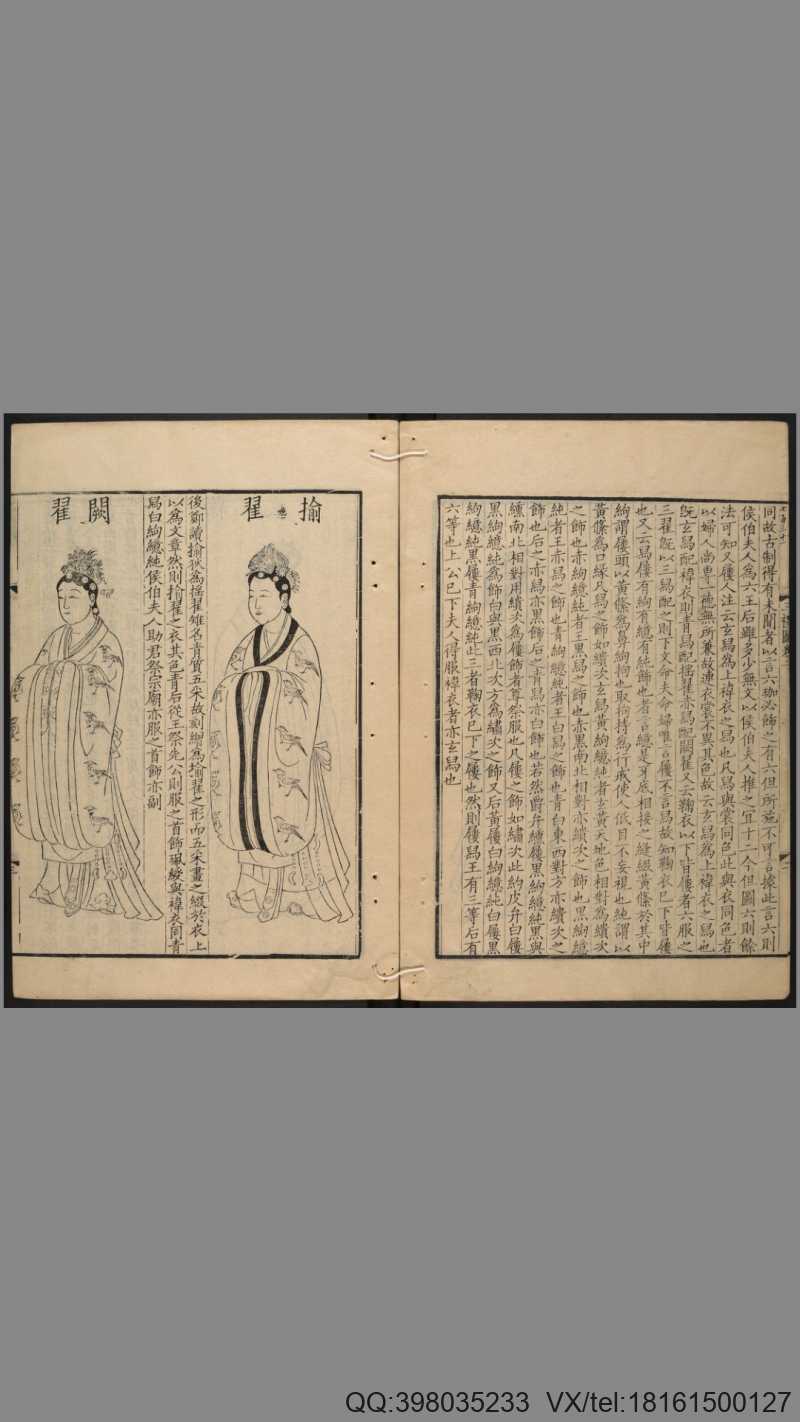 同故古制得有未聞者以言六珈必飾之有六但所施不可言據此言六則
侯伯夫人為六王后雖多少無文以侯伯夫人推之宜十二今但圖六則餘
法可知又屨人注云玄舄為上褘衣之舄也凡舄與裳同色此與衣同色者
以婦人尚專一德無所兼故連衣裳不異其色故云玄舄為上褘衣之舄也
既玄舄配褘衣則青舄配揄翟赤舄配闕翟又云鞠衣以下皆屨者六服之
三翟既以三舄配之則下文命夫命婦唯言屨不言舄故知鞠衣已下皆屨
也又云舄屨有絇有繶有純飾也者言繶是牙底相接之縫綴黃絛於其中
絇謂屨頭以黃絛為鼻絇拘也取拘持為行戒使人低目不妄視也純謂以
黃絛為口緣凡舄之飾如繢次玄舄黃絇繶純者玄黃天地色相對為繢次
之飾也赤絇繶純者王黑舄之飾也赤黑南北相對亦繢次之飾也黑絇繶
純者王赤舄之飾也青絇繶純者王白舄之飾也青白東西對方亦繢次之
飾也后之赤舄亦黑飾后之青舄亦白飾也若然爵弁纁屨黑絇繶純黑與
纁南北相對用繢次為屨飾者尊祭服也凡屨之飾如繡次此約皮弁白屨
黑絇繶純為飾白與黑西北次方為繡次之飾又后黃屨白絇繶純白屨黑
絇繶純黑屨青絇繶純此三者鞠衣已下之屨也然則屨舄王有三等后有
六等也上公已下夫人得服褘衣者亦玄舄也
揄翟
後鄭讀揄狄為揺翟雉名青質五采故刻繒為揄翟之形而五采畫之綴於衣上
以為文章然則揄翟之衣其色青后從王祭先公則服之首飾珮綬與褘衣同青
舄白絇繶純侯伯夫人助君祭宗廟亦服之首飾亦副
闕翟
QQ:398035233 VX/tel:18161500127